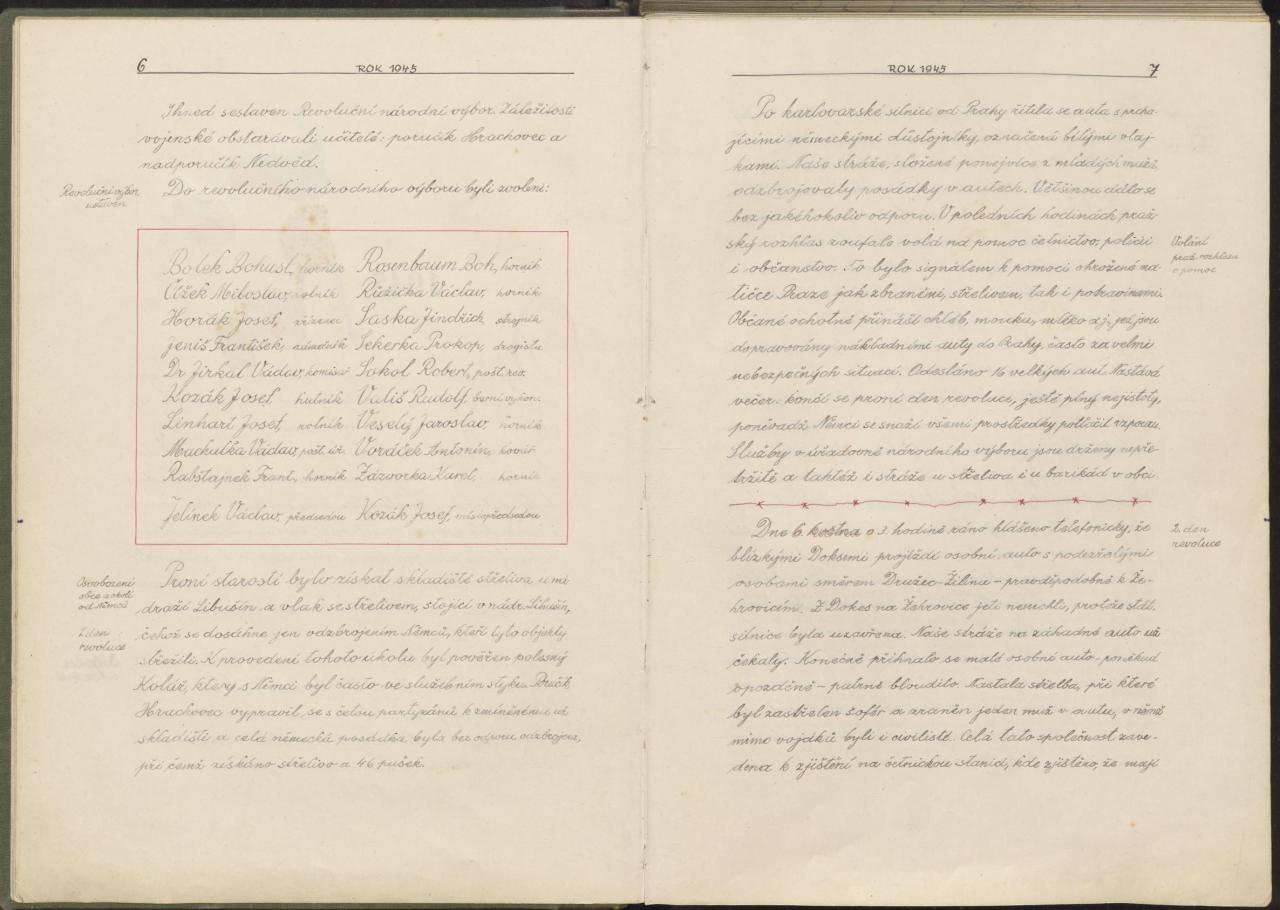 6
ROK 1945
Ihned sestaven Revoluční národní výbor. Záležitosti
vojenské obstarávali učitelé: poručík Hrachovec a
nadporučík Nedvěd.
Revoluční výbor
ustaven
Do revolučního národního výboru byli zvoleni:
Bolek Bohusl., horník Rosenbaum Boh., horník
Čížek Miloslav, rolník Růžička Václav, horník
Horák Josef, zřízenec Saska Jindřich, strojník
Jeniš František, náměstník Sekerka Prokop, drogista
Dr Jirkal Václav, komisař Sokol Robert, pošt. rev.
Kozák Josef, hutník Vuliš Rudolf, berní vykon.
Linhart Josef, rolník Veselý Jaroslav, horník
Machulka Václav, pošt. úř. Voráček Antonín, kovář
Rabštajnek Frant., horník Zázvorka Karel, horník
Jelínek Václav, předsedou Kozák Josef, místopředsedou
Osvobození
obce a okolí
od Němců
1. den
revoluce
První starostí bylo získat skladiště střeliva u ná
draží Libušín a vlak se střelivem, stojící v nádr. Libušín,
čehož se dosáhne jen odzbrojením Němců, kteří tyto objekty
střežili. K provedení tohoto úkolu byl pověřen polesný
Kolář, který s Němci byl často ve služebním styku. Poručík
Hrachovec vypravil se s četou partyzánů k zmíněnému už
skladišti a celá německá posádka byla bez odporu odzbrojena,
při čemž získáno střelivo a 46 pušek.
ROK 1945
7
Po karlovarské silnici od Prahy řítila se auta s prcha-
jícími německými důstojníky, označená bílými vlaj-
kami. Naše stráže, složené ponejvíce z mladých mužů
odzbrojovaly posádky v autech. Většinou dálo se
bez jakéhokoliv odporu. V poledních hodinách praž-
ský rozhlas zoufale volá na pomoc četnictvo, policii
i občanstvo. To bylo signálem k pomoci ohrožené ma-
tičce Praze jak zbraněmi, střelivem, tak i potravinami.
Občané ochotně přináší chléb, mouku, mléko a j., jež jsou
dopravovány nákladními auty do Prahy, často za velmi
nebezpečných situací. Odesláno 16 velkých aut. Nastává
večer: končí se první den revoluce, ještě plný nejistoty,
poněvadž Němci se snaží všemi prostředky potlačit vzpouru.
Služby v úřadovně národního výboru jsou drženy nepře-
tržitě a taktéž i stráže u střeliva i u barikád v obci.
Volání
praž. rozhlasu
o pomoc
2. den
revoluce
Dne 6. května o 3. hodině ráno hlášeno telefonicky, že
blízkými Doksemi projíždí osobní auto s podezřelými
osobami směrem Družec-Žilina - pravděpodobně k Že-
hrovicím. Z Dokes na Žehrovice jeti nemohli, protože stát.
silnice byla uzavřena. Naše stráže na záhadné auto už
čekaly. Konečně přihnalo se malé osobní auto - poněkud
opozděně - patrně bloudilo. Nastala střelba, při které
byl zastřelen šofér a zraněn jeden muž v autu, v němž
mimo vojáků byli i civilisté. Celá tato společnost zave-
dena k zjištění na četnickou stanici, kde zjištěno, že mají